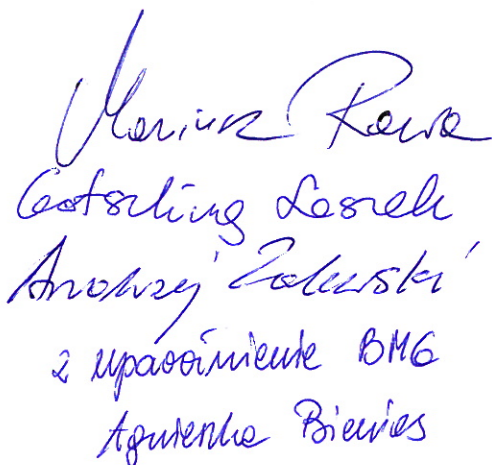 Mariusz Rawa
Gotschling Leszek
Andrzej Zalewski
z upoważnienie BMG
Agnieszka Bienias